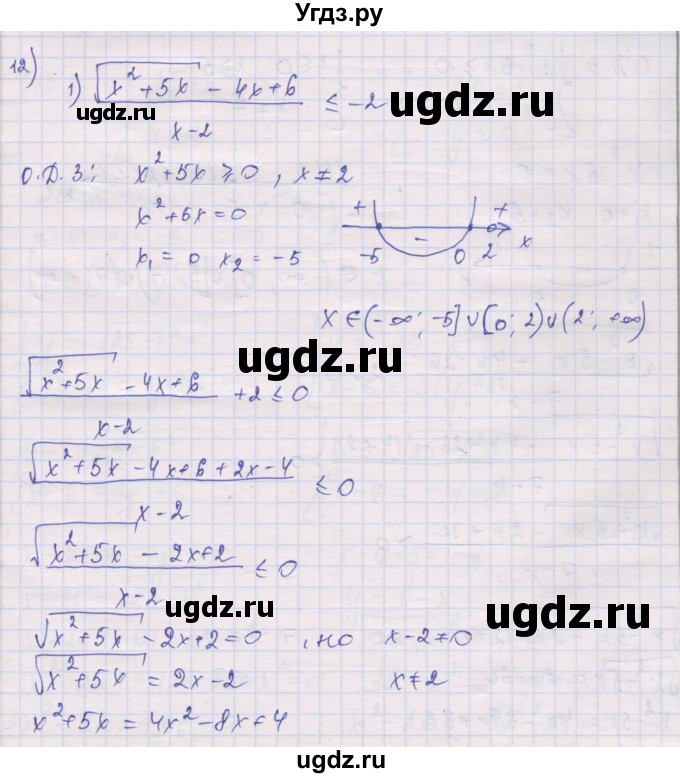 Угдз.ру
12)
1) √(x²+5x) - 4x+6 / x-2 ≤ -2
ugdz.ru
ugdz.ru
О.Д.З: x²+5x ≥ 0, x ≠ 2
x²+5x = 0
x₁ = 0 x₂ = -5
+ - +
-5 0 2 x
x ∈ (-∞; -5] ∪ [0; 2) ∪ (2; +∞)
ugdz.ru
√(x²+5x) - 4x+6 / x-2 + 2 ≤ 0
√(x²+5x) - 4x+6+2x-4 / x-2 ≤ 0
√(x²+5x) - 2x+2 / x-2 ≤ 0
ugdz.ru
ugdz.ru
√(x²+5x) - 2x+2 = 0 , но x-2 ≠ 0
√(x²+5x) = 2x-2 x ≠ 2
x²+5x = 4x²-8x+4
ugdz.ru